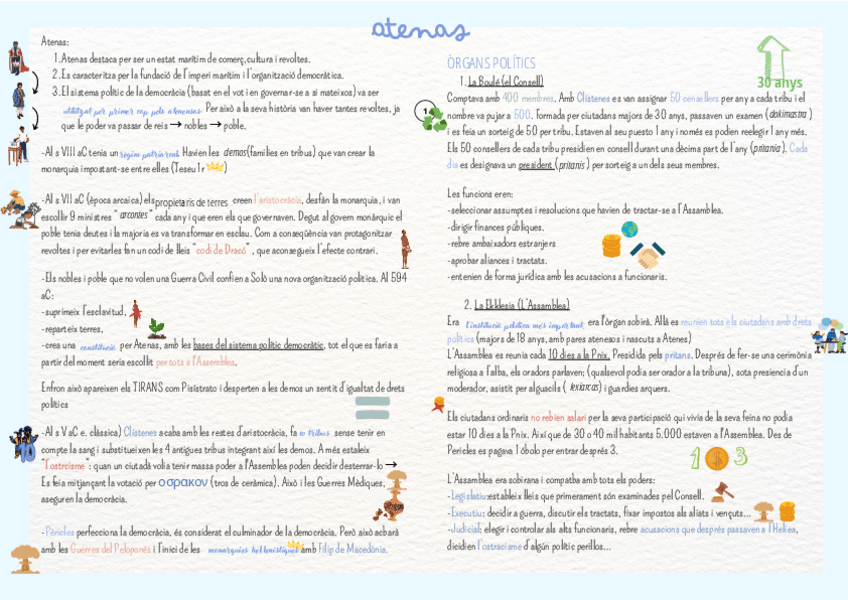 atenas
Atenas:
1. Atenas destaca per ser un estat marítim de comerç, cultura i revoltes.
2. Es caracteritza per la fundació de l'imperi marítim i l'organització democràtica.
3. El sistema polític de la democràcia (basat en el vot i en governar-se a si mateixos) va ser
utilitzat per primer cop pels atenenses. Per això a la seva història van haver tantes revoltes, ja
que le poder va passar de reis → nobles → poble.
-Al s VIII aC tenia un regim patriarcal. Havien les demos(famílies en tribus) que van crear la
monarquia impostant-se entre elles (Teseu 1r )
-Al s VII aC (època arcaica) els propietaris de terres creen l'aristocràcia, desfàn la monarquia, i van
escollir 9 ministres "arcontes" cada any i que eren els que governaven. Degut al govern monàrquic el
poble tenia deutes i la majoria es va transformar en esclau. Com a conseqüència van protagonitzar
revoltes i per evitarles fan un codi de lleis "codi de Dracó" , que aconsegueix l'efecte contrari.
-Els nobles i poble que no volen una Guerra Civil confien a Soló una nova organització política. Al 594
aC:
-suprimeix l'esclavitud,
-reparteix terres,
-crea una constitució per Atenas, amb les bases del sistema polític democràtic, tot el que es faria a
partir del moment seria escollit per tots a l'Assemblea.
Enfron això apareixen els TIRANS com Pisístrato i desperten a les demos un sentit d'igualtat de drets
polítics
-Al s V aC e. clàssica) Clístenes acaba amb les restes d'aristocràcia, fa 10 tribus sense tenir en
compte la sang i substitueixen les 4 antigues tribus integrant així les demos. A més estaleix
"l'ostrcisme": quan un ciutadà volia tenir massa poder a l'Assemblea poden decidir desterrar-lo →
Es feia mitjançant la votació per οσρακον (tros de ceràmica). Això i les Guerres Mèdiques,
asseguren la democràcia.
-Pèricles perfecciona la democràcia, és considerat el culminador de la democràcia. Però això acbarà
amb les Guerres del Peloponés i l'inici de les monarquies hel·lenístiques amb Filip de Macedònia.
ÒRGANS POLÍTICS
30 anys
1. La Boulé (el Consell)
Comptava amb 400 membres. Amb Clístenes es van assignar 50 consellers per any a cada tribu i el
nombre va pujar a 500. formada per ciutadans majors de 30 anys, passaven un examen (dokimastra)
i es feia un sorteig de 50 per tribu. Estaven al seu puesto 1 any i només es podien reelegir 1 any més.
1
Els 50 consellers de cada tribu presidien en consell durant una dècima part de l'any (pritania). Cada
dia es designava un president (pritanis) per sorteig a un dels seus membres.
Les funcions eren:
-seleccionar assumptes i resolucions que havien de tractar-se a l'Assemblea.
-dirigir finances públiques.
-rebre ambaixadors estranjers
-aprobar aliances i tractats.
-entenien de forma jurídica amb les acusacions a funcionaris.
2. La Ekklesia (L'Assamblea)
Era l'institució política més important, era l'òrgan sobirà. Allà es reunien tots els ciutadans amb drets
polítics (majors de 18 anys, amb pares atenesos i nascuts a Atenes)
L'Assamblea es reunia cada 10 dies a la Pnix. Presidida pels pritans. Després de fer-se una cerimònia
religiosa a l'alba, els oradors parlaven; (qualsevol podia ser orador a la tribuna), sota presiencia d'un
moderador, asistit per alguscils ( lexiarcas) i guardies arquers.
Els ciutadans ordinaris no rebien salari per la seva participació qui vivia de la seva feina no podia
estar 10 dies a la Pnix. Així que de 30 o 40 mil habitants 5.000 estaven a l'Assamblea. Des de
Pericles es pagana 1 óbolo per entrar després 3.
1 $ 3
L'Assamblea era sobirana i compatba amb tots els poders:
-Legislatiu:establei x lleis que primerament són examinades pel Consell.
-Executiu: decidir a guerra, discutir els tractats, fixar impostos als aliats i vençuts...
-Judicial: elegir i controlar als alts funcionaris, rebre acusacions que després passaven a l'Heliea,
dicidien l'ostracisme d'algún polític perillos...
10